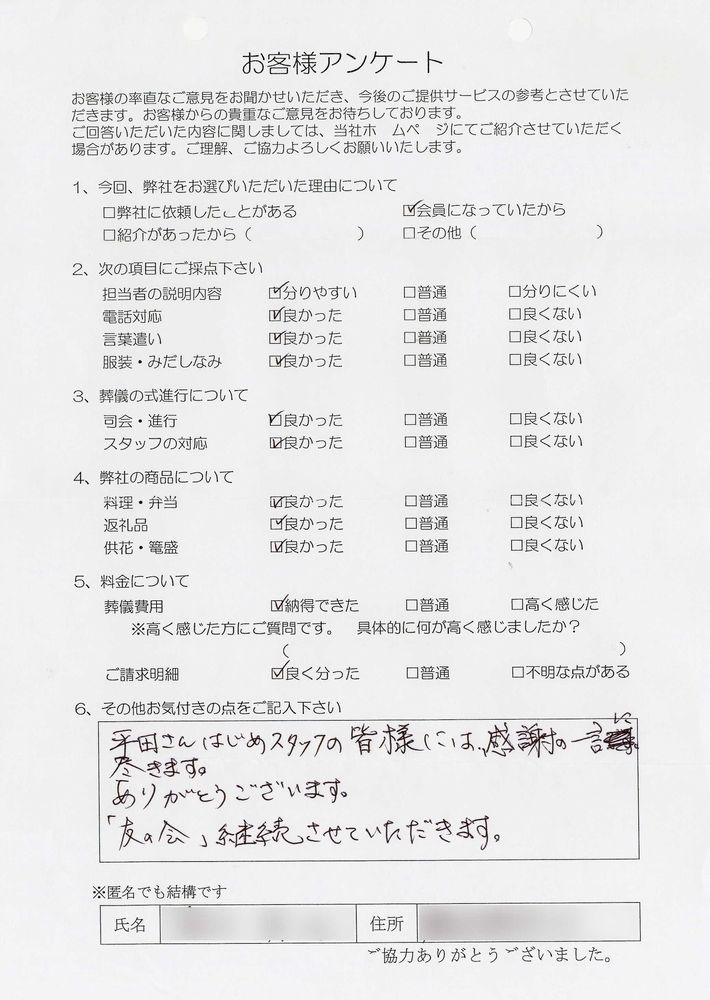 お客様アンケート
お客様の率直なご意見をお聞かせいただき、今後のご提供サービスの参考とさせていた
だきます。お客様からの貴重なご意見をお待ちしております。
ご回答いただいた内容に関しましては、当社ホームページにてご紹介させていただく
場合があります。ご理解、ご協力よろしくお願いいたします。
1、今回、弊社をお選びいただいた理由について
□弊社に依頼したことがある ☑会員になっていたから
□紹介があったから（ ） □その他（ ）
2、次の項目にご採点下さい
担当者の説明内容 ☑分りやすい □普通 □分りにくい
電話対応 ☑良かった □普通 □良くない
言葉遣い ☑良かった □普通 □良くない
服装・みだしなみ ☑良かった □普通 □良くない
3、葬儀の式進行について
司会・進行 ☑良かった □普通 □良くない
スタッフの対応 ☑良かった □普通 □良くない
4、弊社の商品について
料理・弁当 ☑良かった □普通 □良くない
返礼品 ☑良かった □普通 □良くない
供花・篭盛 ☑良かった □普通 □良くない
5、料金について
葬儀費用 ☑納得できた □普通 □高く感じた
※高く感じた方にご質問です。 具体的に何が高く感じましたか？
（ ）
ご請求明細 ☑良く分った □普通 □不明な点がある
6、その他お気付きの点をご記入下さい
平田さんはじめスタッフの皆様には、感謝の一言に
尽きます。
ありがとうございます。
「友の会」継続させていただきます。
※匿名でも結構です
氏名 住所
ご協力ありがとうございました。